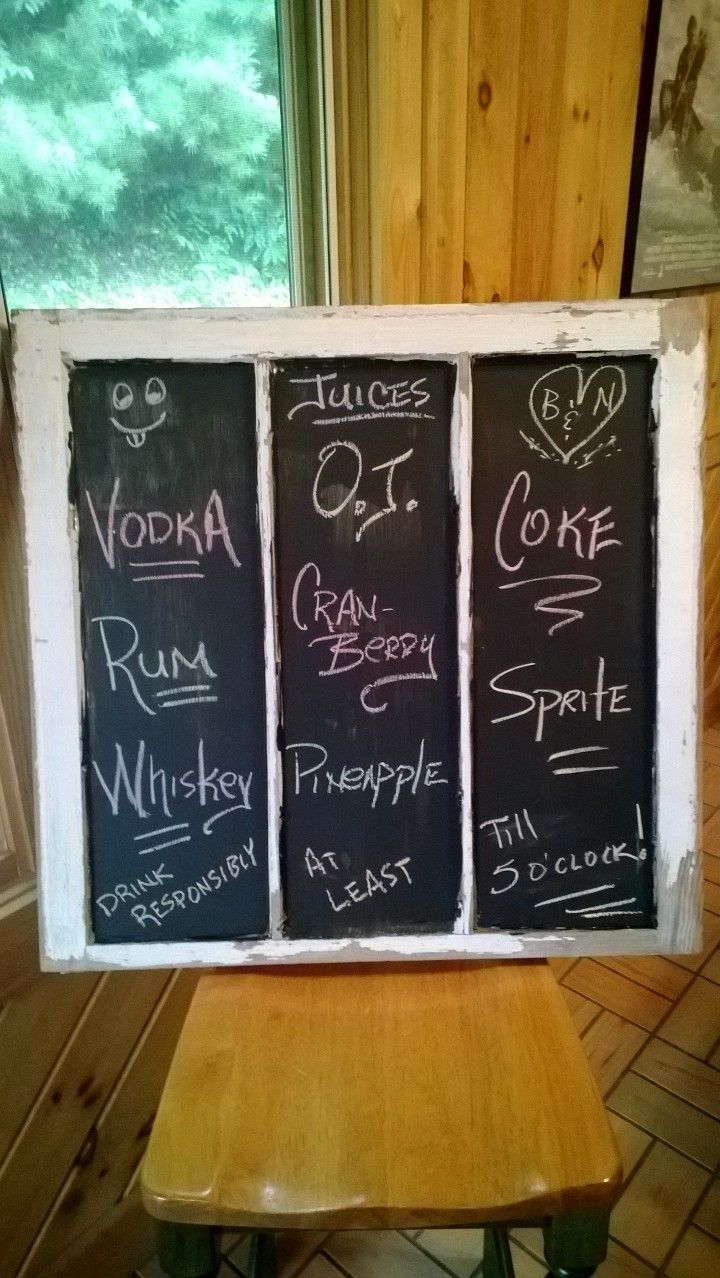 VODKA
RUM
Whiskey
DRINK
RESPONSIBLY
JUICES
O.J.
CRAN-
BERRY
PINEAPPLE
AT
LEAST
B & N
COKE
SPRITE
Till
5 O'CLOCK!